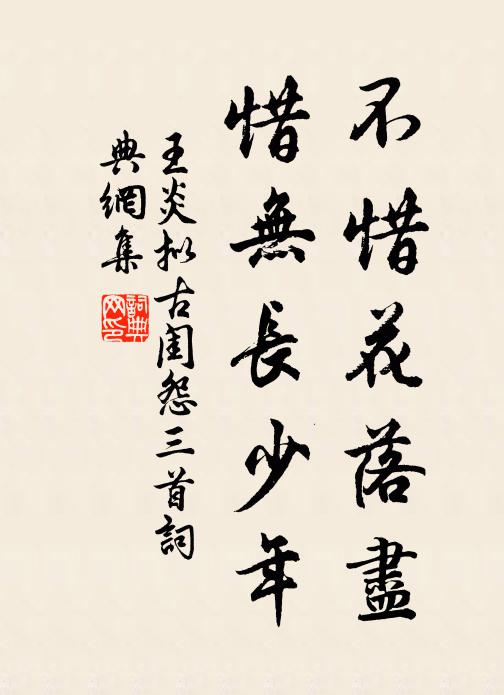 不惜花落盡
惜無長少年
王炎拟古閨怨三首詞
典網集
詞典網印